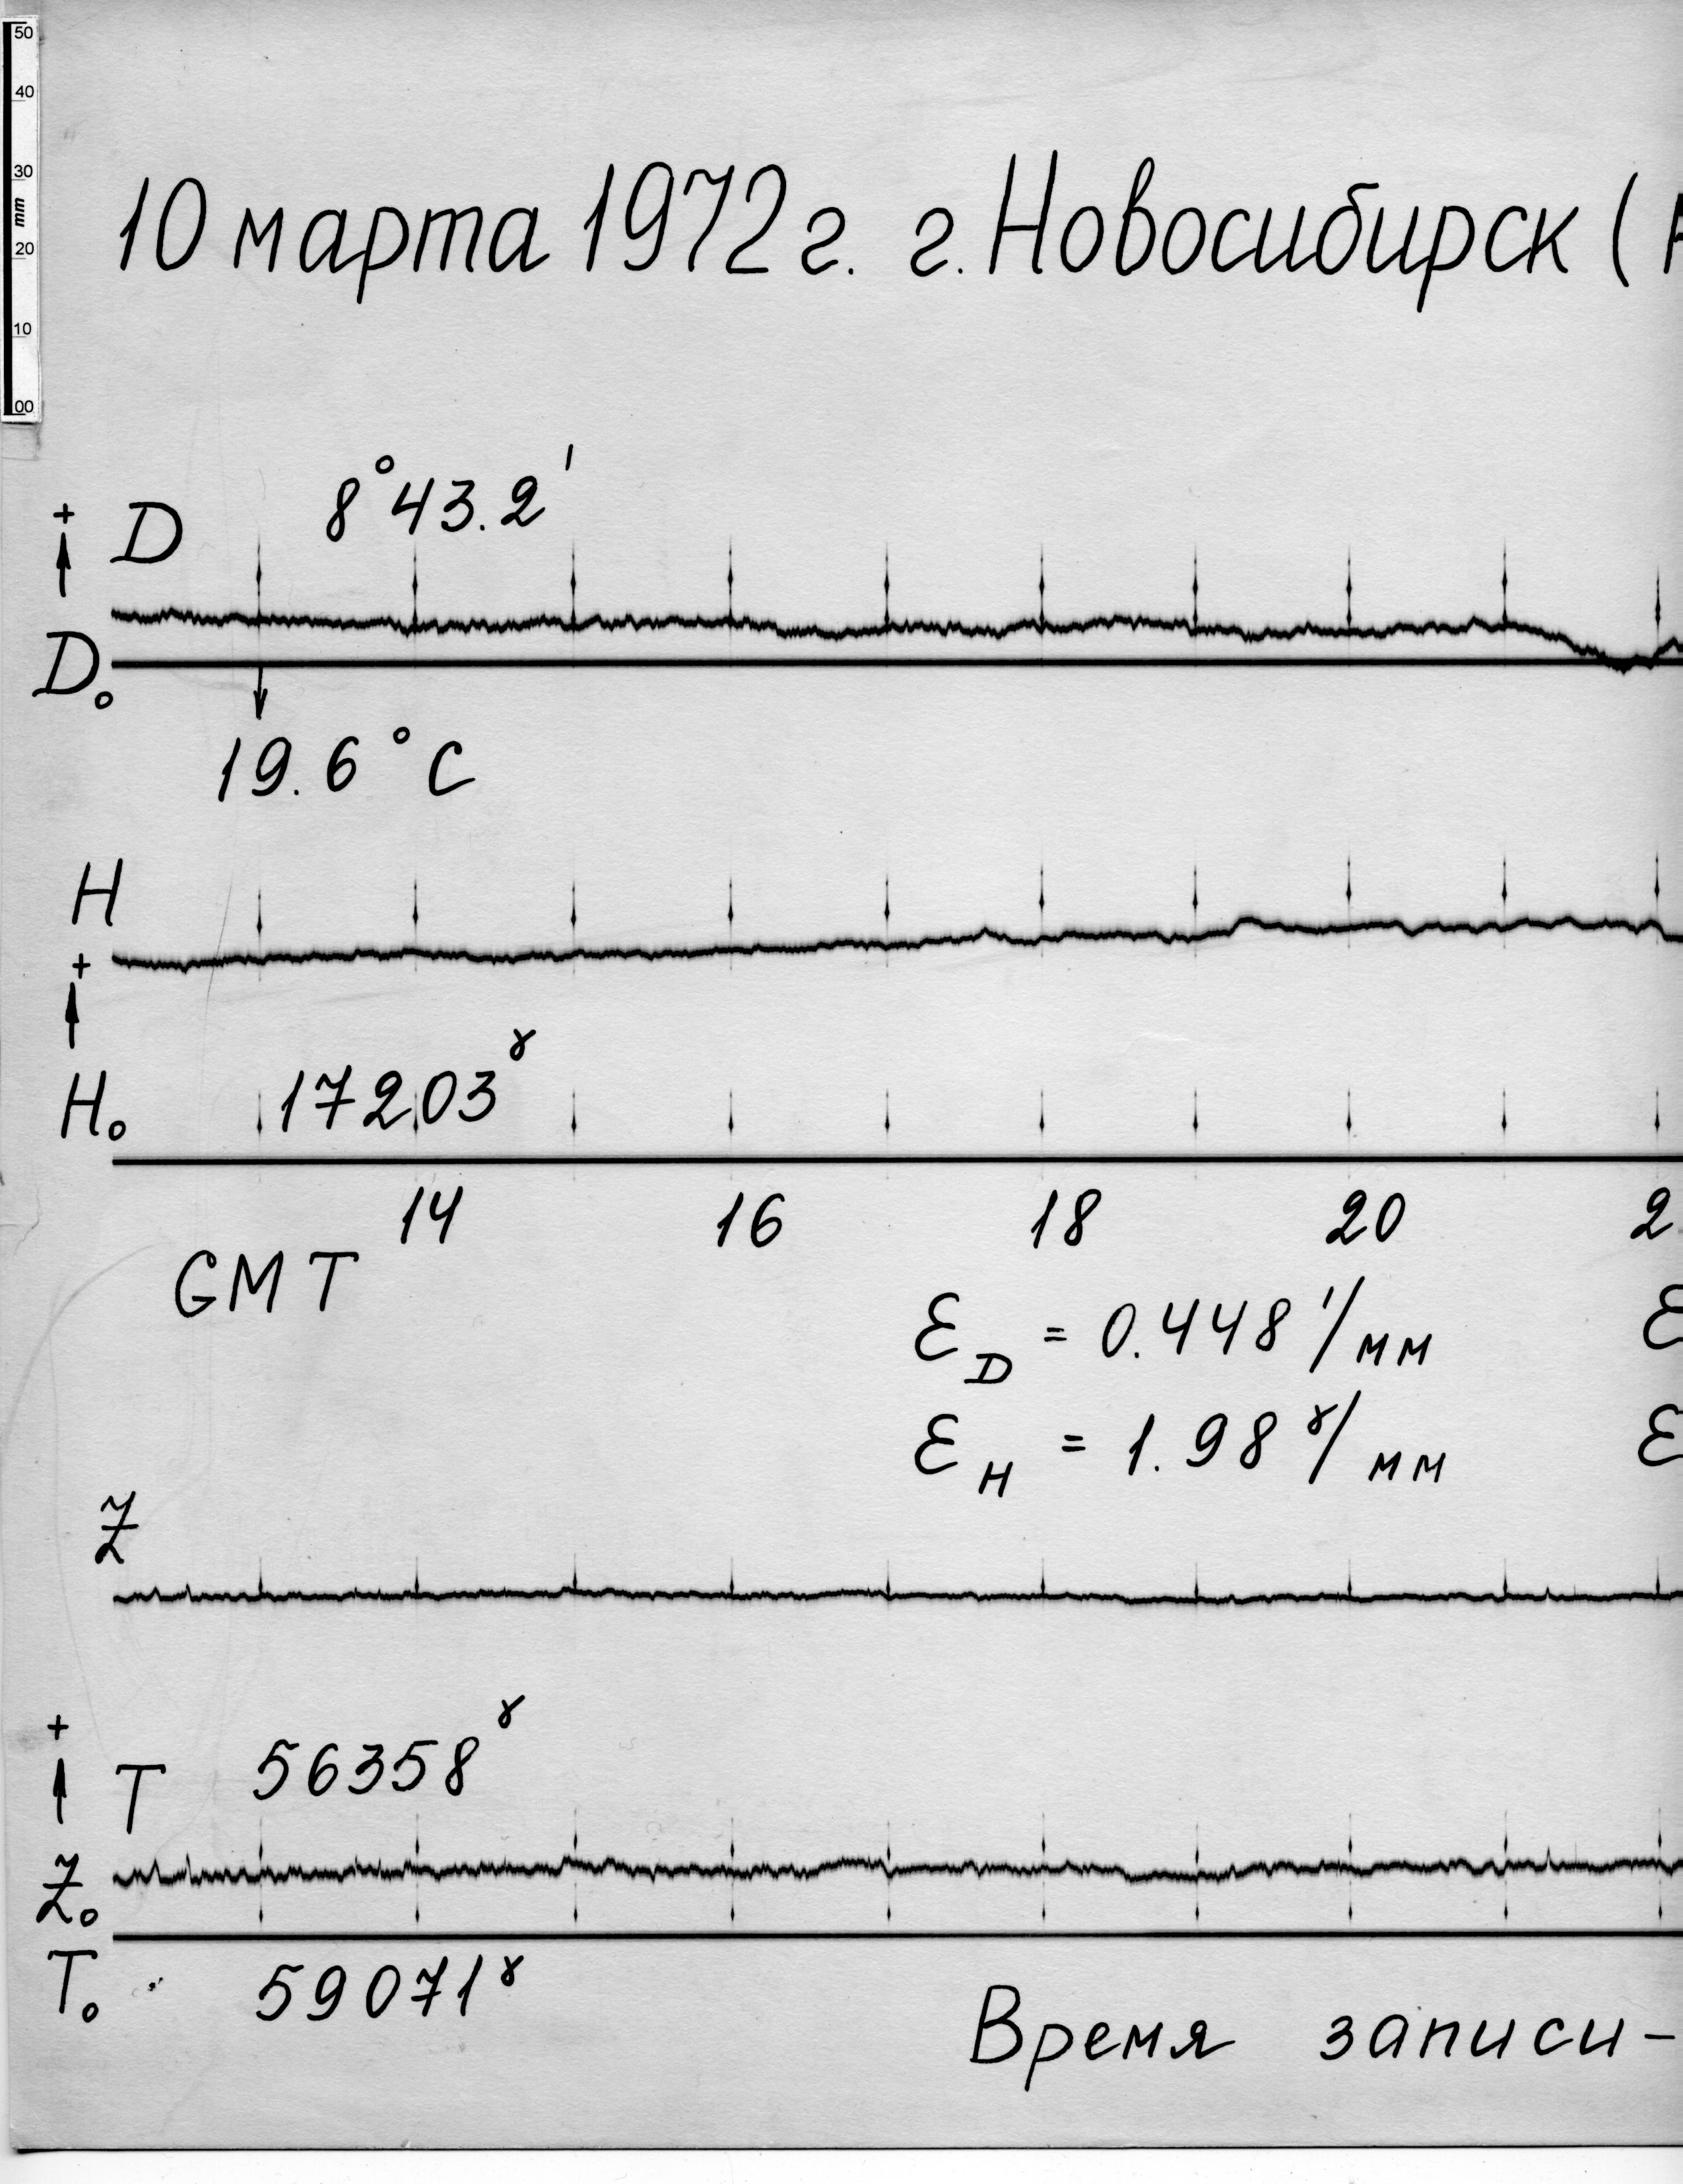 50
40
30
mm
20
10
00
10 марта 1972 г. г. Новосибирск (
+
D 8°43.2'
D₀
19.6 °C
H
+
H₀ 17203ᵞ
14 16 18 20 2
GMT
Ɛ_D = 0.448 '/мм Ɛ
Ɛ_H = 1.98 ᵞ/мм Ɛ
Z
+
T 56358ᵞ
Z₀
T₀ 59071ᵞ
Время записи –